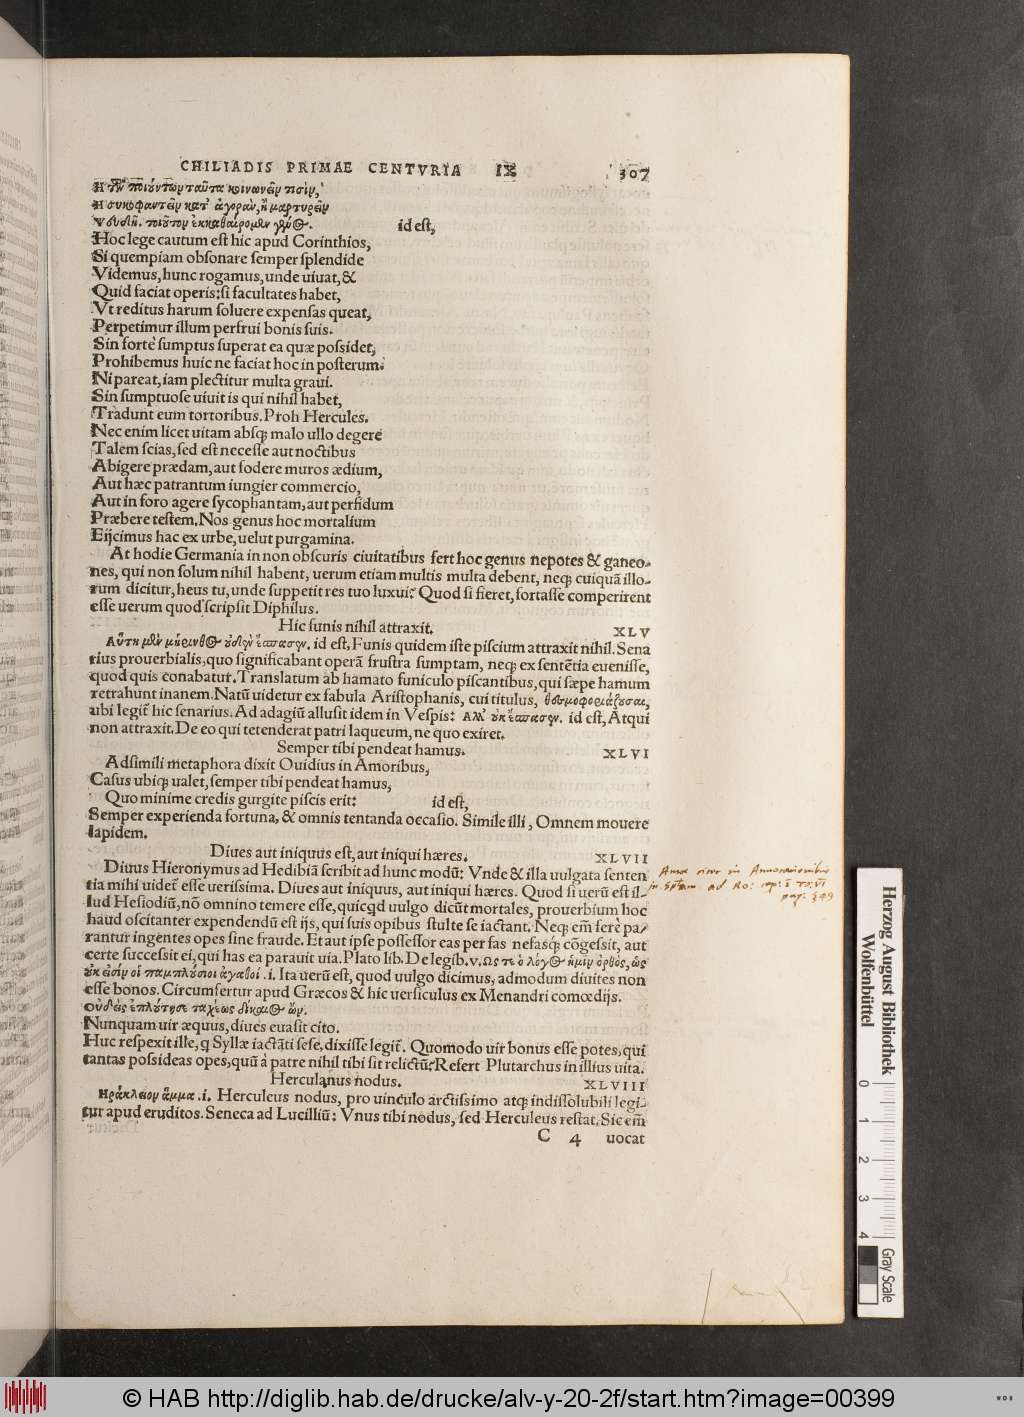 CHILIADIS PRIMAE CENTVRIA IX 307
Ἢ τῶν ποιούντων ταῦτα κοινωνεῖν τισίν,
Ἢ συκοφαντεῖν κατ' ἀγοραν, ἢ μαρτυρεῖν
Ψευδῆ. τοιοῦτον ἐκκαθαίρομεν γένος. id est,
Hoc lege cautum est hic apud Corinthios,
Si quempiam obsonare semper splendide
Videmus, hunc rogamus, unde uiuat, &
Quid faciat operis: si facultates habet,
Vt reditus harum soluere expensas queat,
Perpetimur illum perfrui bonis suis.
Sin forte sumptus superat ea quæ possidet,
Prohibemus huic ne faciat hoc in posterum.
Ni pareat, iam plectitur multa graui.
Sin sumptuose uiuit is qui nihil habet,
Tradunt eum tortoribus. Proh Hercules.
Nec enim licet uitam absq; malo ullo degere
Talem scias, sed est necesse aut noctibus
Abigere prædam, aut fodere muros ædium,
Aut hæc patrantum iungier commercio,
Aut in foro agere sycophantam, aut perfidum
Præbere testem. Nos genus hoc mortalium
Eijcimus hac ex urbe, uelut purgamina.
At hodie Germania in non obscuris ciuitatibus fert hoc genus nepotes & ganeo-
nes, qui non solum nihil habent, uerum etiam multis multa debent, neq; cuiquā illo-
rum dicitur, heus tu, unde suppetit res tuo luxui? Quod si fieret, fortasse comperirent
esse uerum quod scripsit Diphilus.
Hic funis nihil attraxit. XLV
Αὕτη μὲν μήρινθος οὐδὲν ἔσπασεν. id est, Funis quidem iste piscium attraxit nihil. Sena
rius prouerbialis, quo significabant operā frustra sumptam, neq; ex sentētia euenisse,
quod quis conabatur. Translatum ab hamato funiculo piscantibus, qui sæpe hamum
retrahunt inanem. Natū uidetur ex fabula Aristophanis, cui titulus, θεσμοφοριάζουσαι,
ubi legit̄ hic senarius. Ad adagiū allusit idem in Vespis: Αλλ' οὐκ ἔσπασεν. id est, Atqui
non attraxit. De eo qui tetenderat patri laqueum, ne quo exiret.
Semper tibi pendeat hamus. XLVI
Adsimili metaphora dixit Ouidius in Amoribus,
Casus ubiq; ualet, semper tibi pendeat hamus,
Quo minime credis gurgite piscis erit: id est,
Semper experienda fortuna, & omnis tentanda occasio. Simile illi, Omnem mouere
lapidem.
Diues aut iniquus est, aut iniqui hæres. XLVII
Diuus Hieronymus ad Hedibiā scribit ad hunc modū: Vnde & illa uulgata senten
tia mihi uidet̄ esse uerissima. Diues aut iniquus, aut iniqui hæres. Quod si uerū est il-
lud Hesiodiū, nō omnino temere esse, quicqd uulgo dicūt mortales, prouerbium hoc
haud oscitanter expendendū est ijs, qui suis opibus stulte se iactant. Neq; em̄ ferè pa-
rantur ingentes opes sine fraude. Et aut ipse possessor eas per fas nefasq; cōgessit, aut
certe successit ei, qui has ea parauit uia. Plato lib. De legib. v. Ως τε ὁ λόγος ἡμῖν ὀρθὸς, ὡς
οὐκ εἰσὶν οἱ παμπλούσιοι ἀγαθοί .i. Ita uerū est, quod uulgo dicimus, admodum diuites non
esse bonos. Circumfertur apud Græcos & hic uersiculus ex Menandri comœdijs.
Οὐδεὶς ἐπλούτησε ταχέως δίκαιος ὤν.
Nunquam uir æquus, diues euasit cito.
Huc respexit ille, q Syllæ iactāti sese, dixisse legit̄. Quomodo uir bonus esse potes, qui
tantas possideas opes, quū à patre nihil tibi sit relictū? Refert Plutarchus in illius uita.
Herculanus nodus. XLVIII
Ηράκλειον ἅμμα .i. Herculeus nodus, pro uinculo arctissimo atq; indissolubili legi-
tur apud eruditos. Seneca ad Lucilliū: Vnus tibi nodus, sed Herculeus restat. Sic em̄
C 4 uocat
in Annotationibus
ad Ro:
pag: 349
Herzog August Bibliothek
Wolfenbüttel
0 1 2 3 4
Gray Scale
© HAB http://diglib.hab.de/drucke/alv-y-20-2f/start.htm?image=00399
WDB